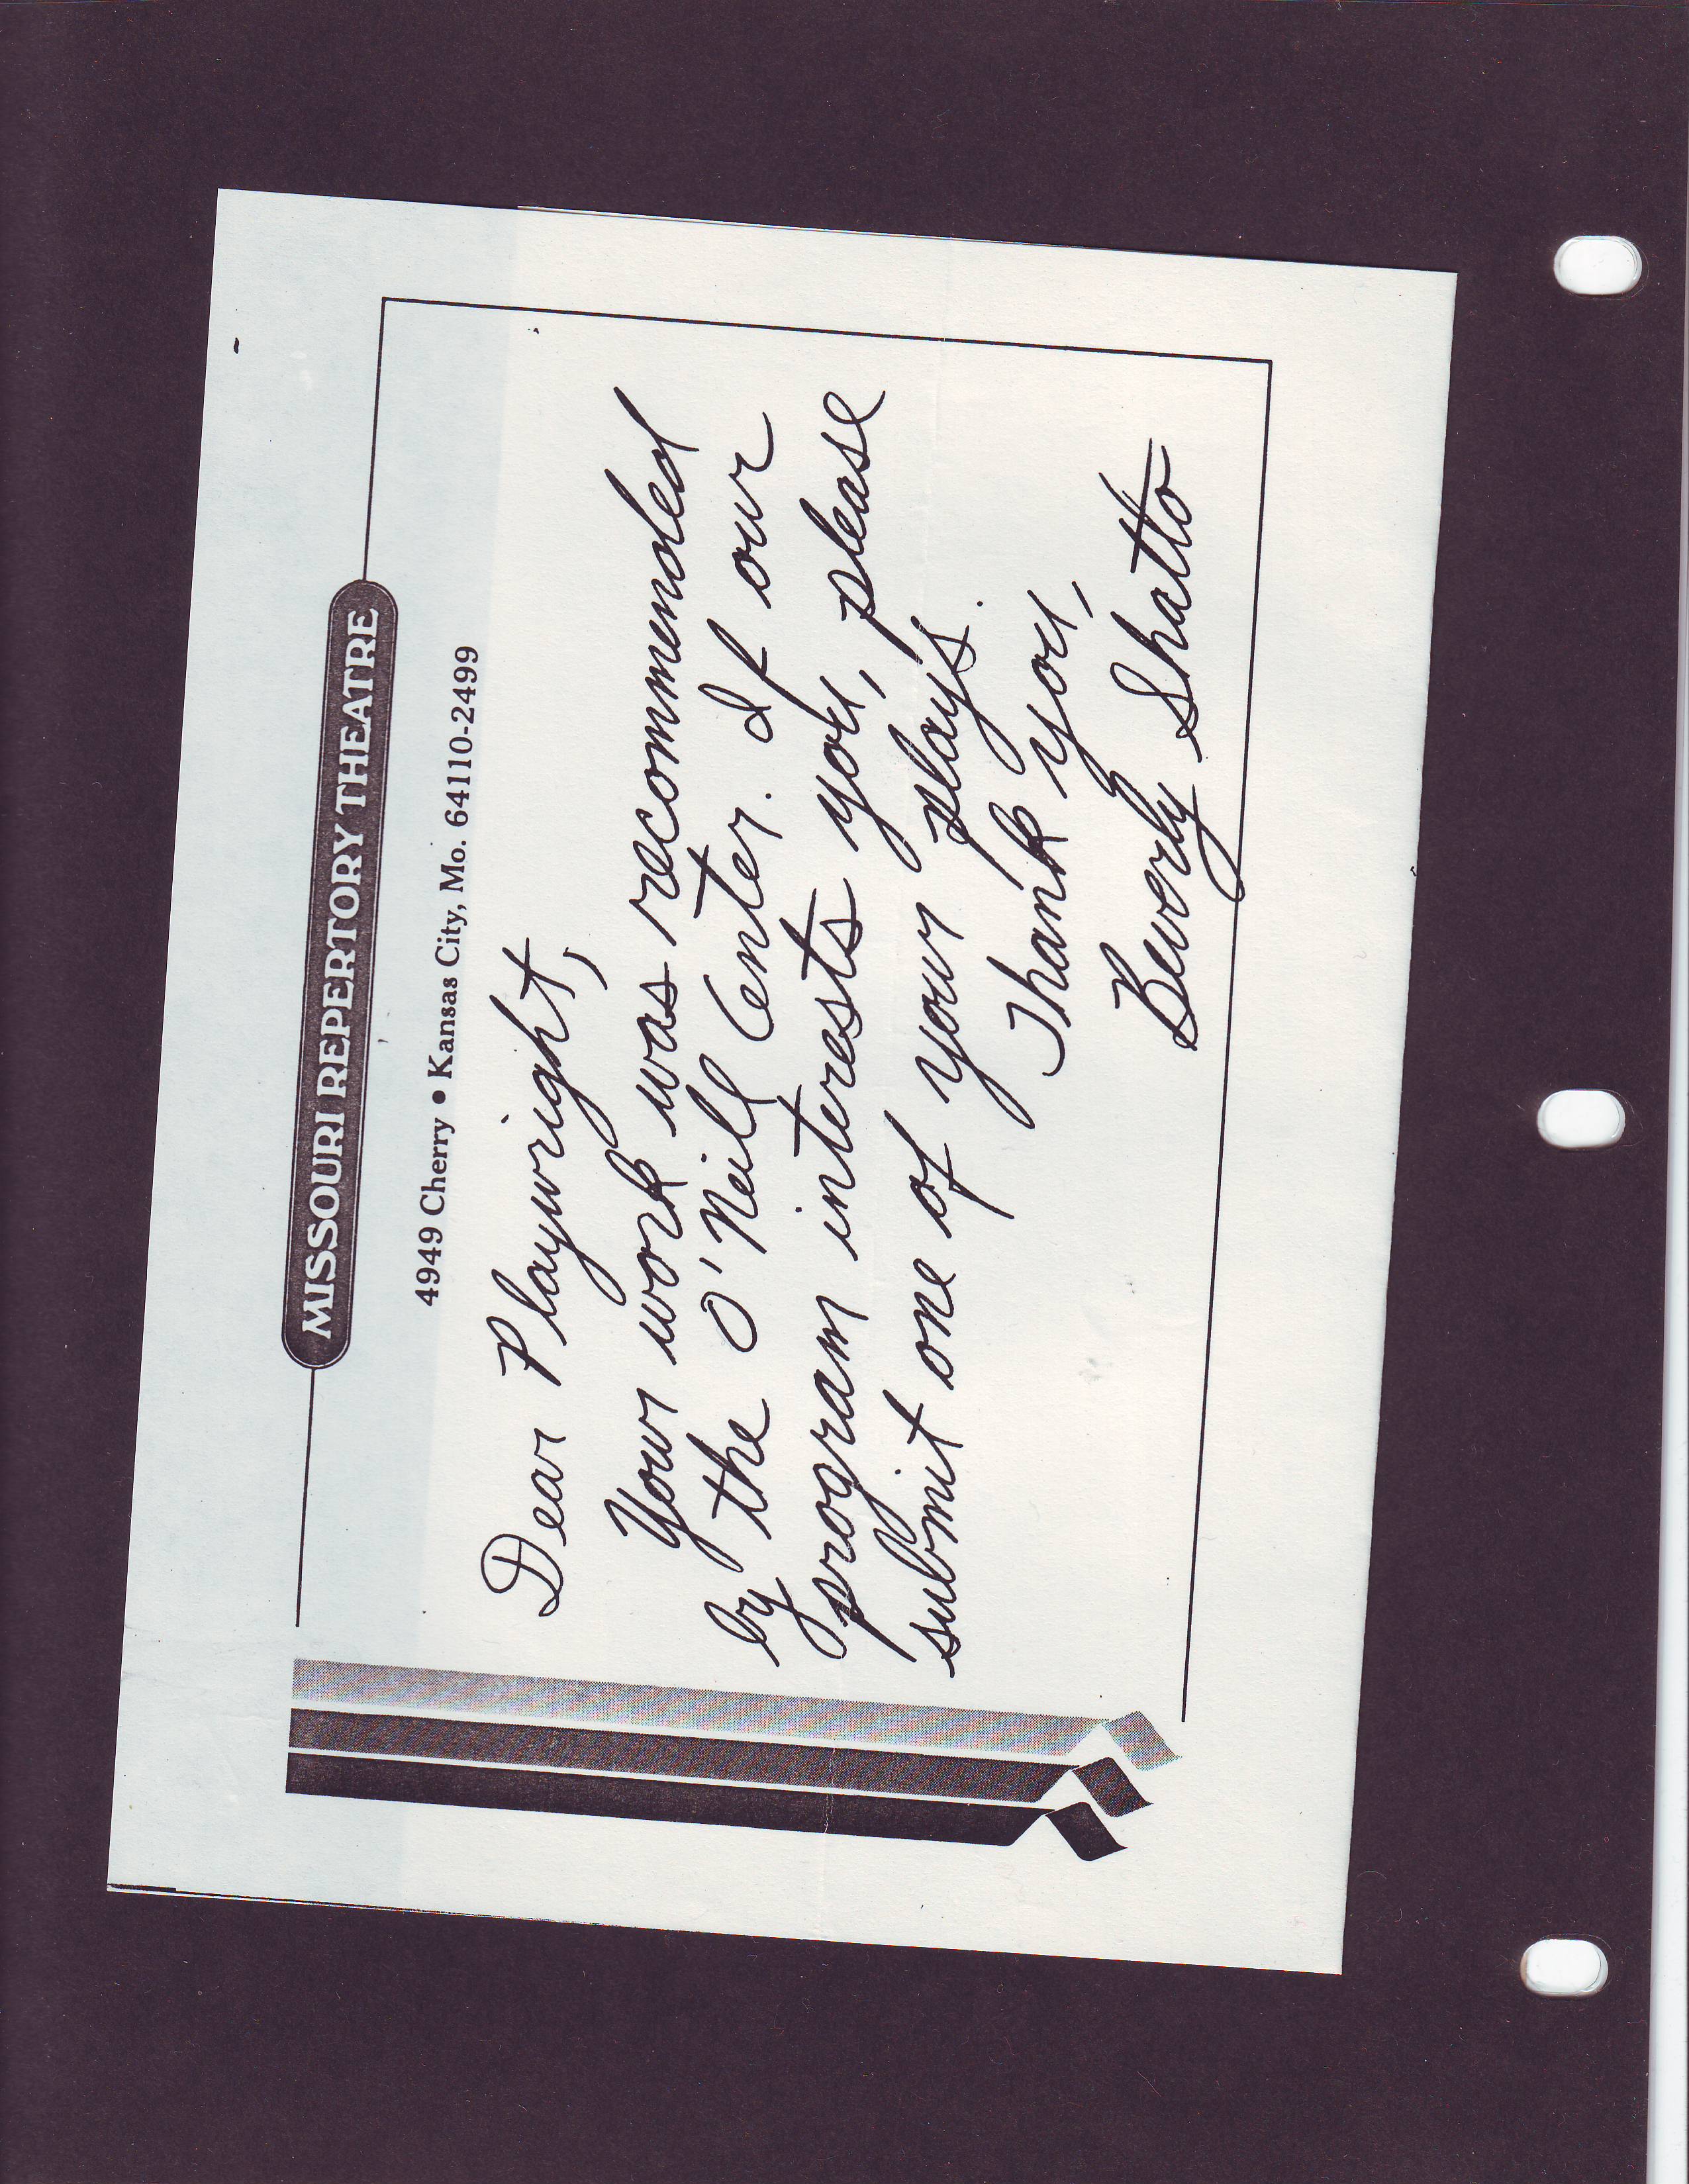 MISSOURI REPERTORY THEATRE
4949 Cherry • Kansas City, Mo. 64110-2499
Dear Playwright,
Your work was recommended
by the O'Neill Center. If our
program interests you, please
submit one of your plays.
Thank you,
Beverly Shatto